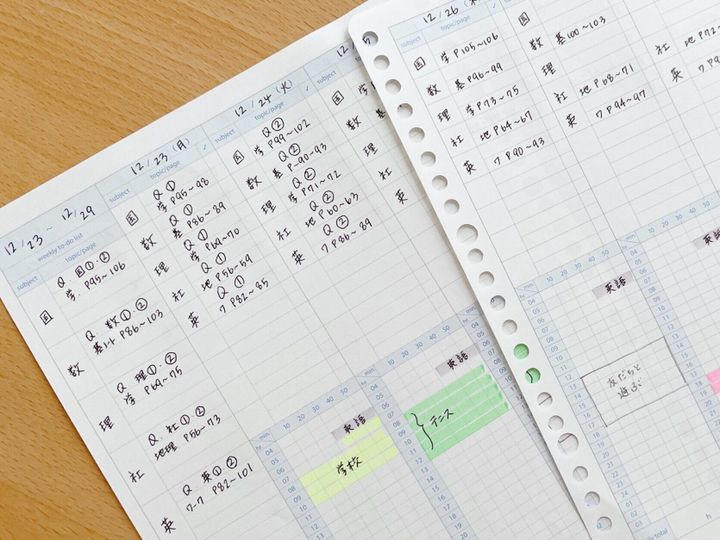 12/23 ~ 12/29
weekly to-do list
subject topic/page
国 Q 国①.②
学. P95~106
数 Q 数①.②
基ート P86~103
理 Q 理①.②
学 P69~75
社 Q. 社①.②
地理 P56~73
英 Q 英①.②
ワーク P82~101
12/23 (月)
subject topic/page ✓
国 Q ①
学 P95~98
数 Q ①
基 P86~89
理 Q ①
学 P69~70
社 Q ①
地 P56~59
英 Q ①
ワ P82~85
12/24 (火)
subject topic/page ✓
国 Q ②
学 P99~102
数 Q ②
基 P-90-93
理 Q ②
学 P71~72
社 Q ②
地 P60~63
英 Q ②
ワ P86~89
subject
国
数
理
社
英
subject topic/page ✓
国 学 P105~106
数 基 P96~99
理 学 P73~75
社 地 P64~67
英 ワ P90~93
12/26
subject topic/page
国
数 基100~103
理
社 地 P68~71
英 ワ P94~97
社 地 P72~
英 ワP
hr min 10 20 30 40 50
英語
学校
hr min 10 20 30 40 50
英語
テニス
hr min 10 20 30 40 50
英語
友だちと
遊ぶ
英語